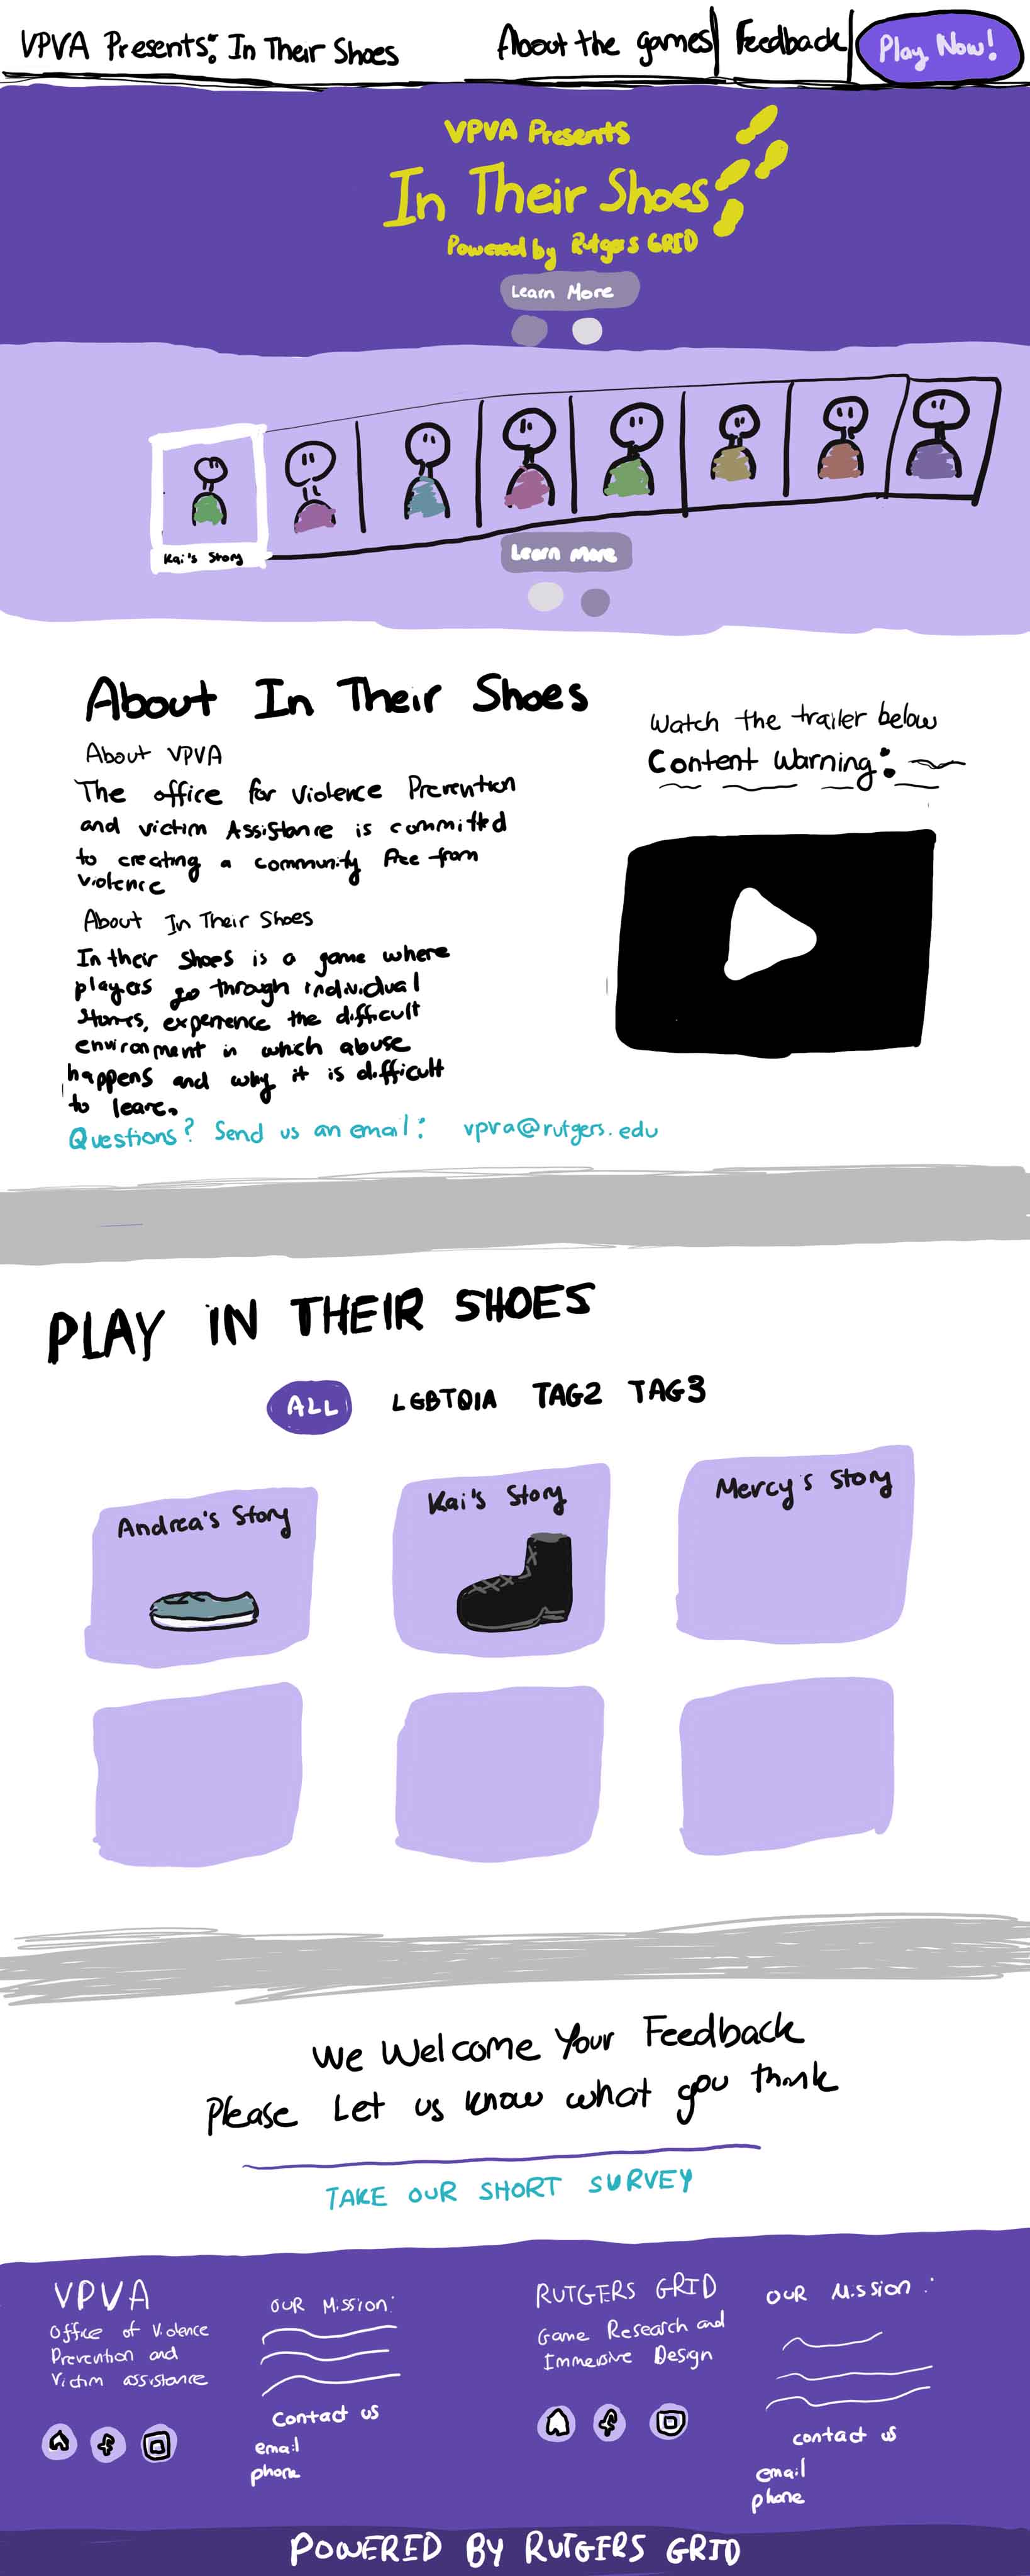 VPVA Presents: In Their Shoes
About the games
Feedback
Play Now!
VPVA Presents
In Their Shoes
Powered by Rutgers GRID
Learn More
Kai's Story
Learn more
About In Their Shoes
About VPVA
The office for Violence Prevention
and victim Assistance is committed
to creating a community free from
violence
About In Their Shoes
In their shoes is a game where
players go through individual
stories, experience the difficult
environment in which abuse
happens and why it is difficult
to leave.
Questions? Send us an email: vpva@rutgers.edu
Watch the trailer below
Content Warning:
PLAY IN THEIR SHOES
ALL
LGBTQIA
TAG2
TAG3
Andrea's Story
Kai's Story
Mercy's Story
We Welcome Your Feedback
Please Let us know what you think
TAKE OUR SHORT SURVEY
VPVA
Office of Violence
Prevention and
Victim assistance
OUR Mission:
Contact us
email
phone
RUTGERS GRID
Game Research and
Immersive Design
OUR Mission:
contact us
email
phone
POWERED BY RUTGERS GRID